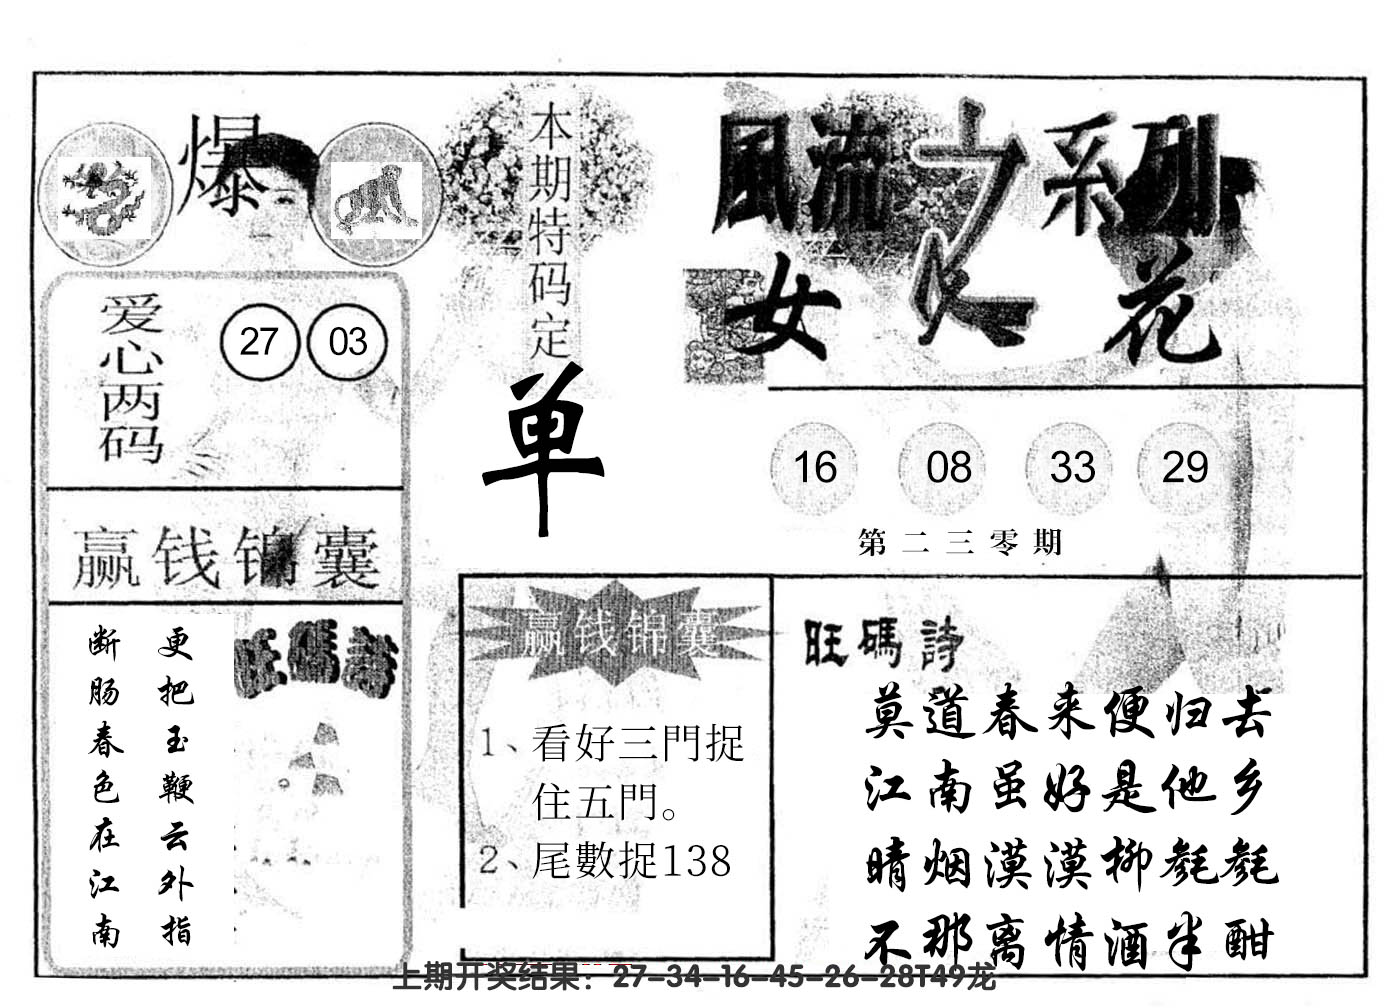 爆
本期特码定
单
風流之系列
女人花
爱心两码
27 03
16 08 33 29
第二三零期
赢钱锦囊
更把玉鞭云外指
断肠春色在江南
旺碼詩
赢钱锦囊
1、看好三門捉
住五門。
2、尾數捉138
旺碼詩
莫道春来便归去
江南虽好是他乡
晴烟漠漠柳毵毵
不那离情酒半酣
上期开奖结果：27-34-16-45-26-28T49龙